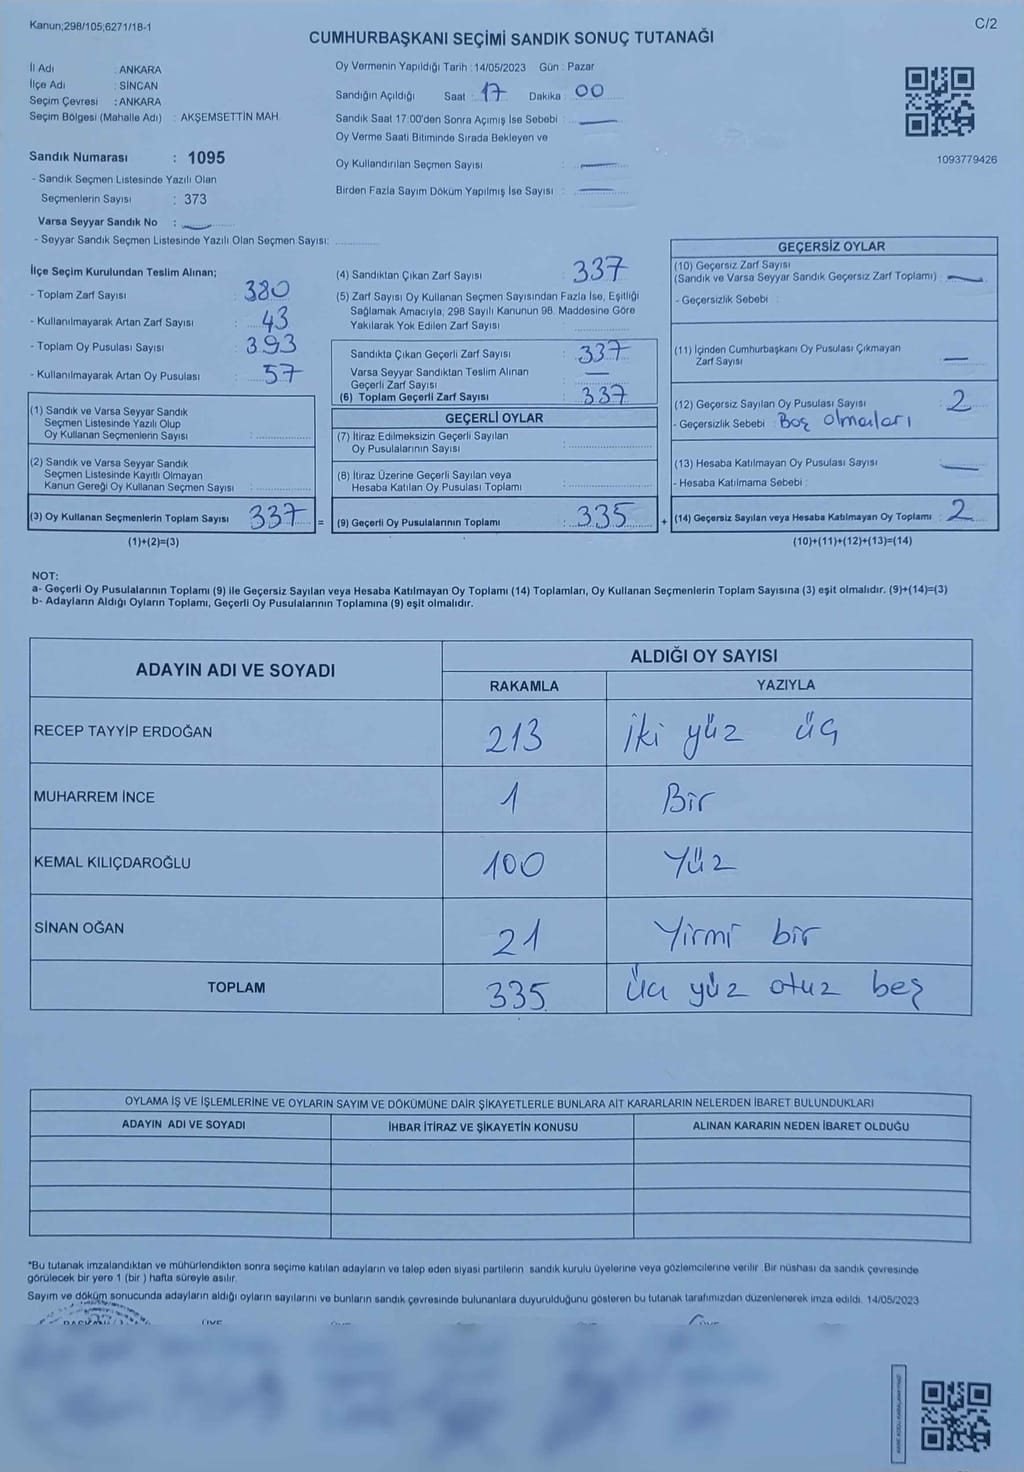 Kanun;298/105;6271/18-1
C/2
CUMHURBAŞKANI SEÇİMİ SANDIK SONUÇ TUTANAĞI
İl Adı : ANKARA
İlçe Adı : SİNCAN
Seçim Çevresi : ANKARA
Seçim Bölgesi (Mahalle Adı) : AKŞEMSETTİN MAH.
Sandık Numarası : 1095
- Sandık Seçmen Listesinde Yazılı Olan
Seçmenlerin Sayısı : 373
Varsa Seyyar Sandık No :
- Seyyar Sandık Seçmen Listesinde Yazılı Olan Seçmen Sayısı:
Oy Vermenin Yapıldığı Tarih : 14/05/2023 Gün : Pazar
Sandığın Açıldığı Saat : 17 Dakika 00
Sandık Saat 17:00'den Sonra Açımış İse Sebebi :
Oy Verme Saati Bitiminde Sırada Bekleyen ve
Oy Kullandırılan Seçmen Sayısı :
Birden Fazla Sayım Döküm Yapılmış İse Sayısı :
1093779426
İlçe Seçim Kurulundan Teslim Alınan;
- Toplam Zarf Sayısı : 380
- Kullanılmayarak Artan Zarf Sayısı : 43
- Toplam Oy Pusulası Sayısı : 393
- Kullanılmayarak Artan Oy Pusulası : 57
(1) Sandık ve Varsa Seyyar Sandık
Seçmen Listesinde Yazılı Olup
Oy Kullanan Seçmenlerin Sayısı :
(2) Sandık ve Varsa Seyyar Sandık
Seçmen Listesinde Kayıtlı Olmayan
Kanun Gereği Oy Kullanan Seçmen Sayısı :
(3) Oy Kullanan Seçmenlerin Toplam Sayısı : 337 =
(1)+(2)=(3)
(4) Sandıktan Çıkan Zarf Sayısı : 337
(5) Zarf Sayısı Oy Kullanan Seçmen Sayısından Fazla İse, Eşitliği
Sağlamak Amacıyla; 298 Sayılı Kanunun 98. Maddesine Göre
Yakılarak Yok Edilen Zarf Sayısı :
Sandıkta Çıkan Geçerli Zarf Sayısı : 337
Varsa Seyyar Sandıktan Teslim Alınan
Geçerli Zarf Sayısı :
(6) Toplam Geçerli Zarf Sayısı : 337
GEÇERLİ OYLAR
(7) İtiraz Edilmeksizin Geçerli Sayılan
Oy Pusulalarının Sayısı :
(8) İtiraz Üzerine Geçerli Sayılan veya
Hesaba Katılan Oy Pusulası Toplamı :
(9) Geçerli Oy Pusulalarının Toplamı : 335 +
GEÇERSİZ OYLAR
(10) Geçersiz Zarf Sayısı
(Sandık ve Varsa Seyyar Sandık Geçersiz Zarf Toplamı) :
- Geçersizlik Sebebi :
(11) İçinden Cumhurbaşkanı Oy Pusulası Çıkmayan
Zarf Sayısı
(12) Geçersiz Sayılan Oy Pusulası Sayısı : 2
- Geçersizlik Sebebi : Boş olmaları
(13) Hesaba Katılmayan Oy Pusulası Sayısı :
- Hesaba Katılmama Sebebi :
(14) Geçersiz Sayılan veya Hesaba Katılmayan Oy Toplamı : 2
(10)+(11)+(12)+(13)=(14)
NOT:
a- Geçerli Oy Pusulalarının Toplamı (9) ile Geçersiz Sayılan veya Hesaba Katılmayan Oy Toplamı (14) Toplamları, Oy Kullanan Seçmenlerin Toplam Sayısına (3) eşit olmalıdır. (9)+(14)=(3)
b- Adayların Aldığı Oyların Toplamı, Geçerli Oy Pusulalarının Toplamına (9) eşit olmalıdır.
ADAYIN ADI VE SOYADI
ALDIĞI OY SAYISI
RAKAMLA YAZIYLA
RECEP TAYYİP ERDOĞAN 213 İki yüz üç
MUHARREM İNCE 1 Bir
KEMAL KILIÇDAROĞLU 100 Yüz
SİNAN OĞAN 21 Yirmi bir
TOPLAM 335 Üç yüz otuz beş
OYLAMA İŞ VE İŞLEMLERİNE VE OYLARIN SAYIM VE DÖKÜMÜNE DAİR ŞİKAYETLERLE BUNLARA AİT KARARLARIN NELERDEN İBARET BULUNDUKLARI
ADAYIN ADI VE SOYADI İHBAR İTİRAZ VE ŞİKAYETİN KONUSU ALINAN KARARIN NEDEN İBARET OLDUĞU
*Bu tutanak imzalandıktan ve mühürlendikten sonra seçime katılan adayların ve talep eden siyasi partilerin sandık kurulu üyelerine veya gözlemcilerine verilir. Bir nüshası da sandık çevresinde
görülecek bir yere 1 (bir ) hafta süreyle asılır.
Sayım ve döküm sonucunda adayların aldığı oyların sayılarını ve bunların sandık çevresinde bulunanlara duyurulduğunu gösteren bu tutanak tarafımızdan düzenlenerek imza edildi. 14/05/2023